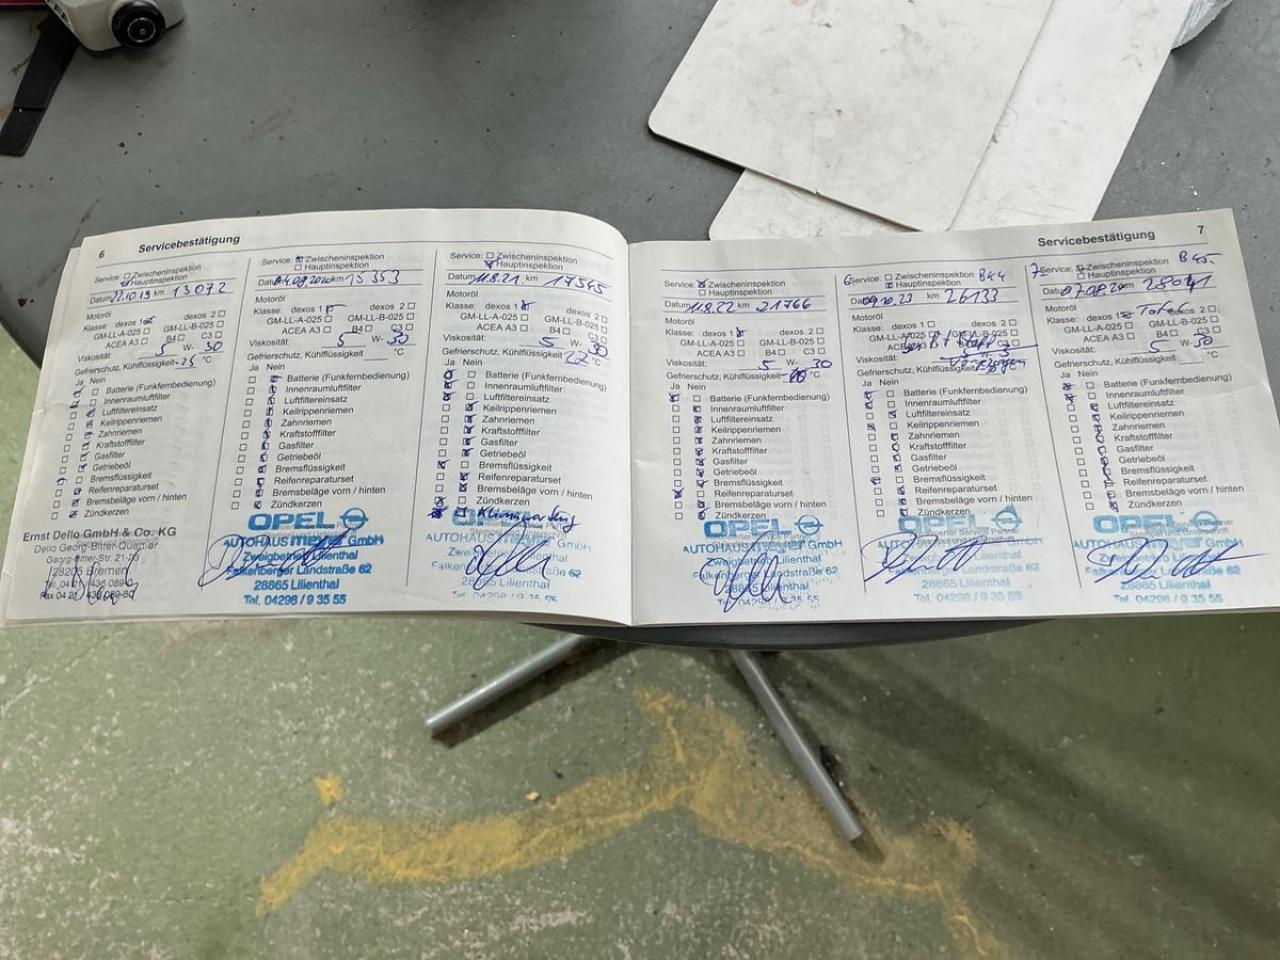 6 Servicebestätigung
Service: Zwischeninspektion
Hauptinspektion
Datum 22.10.19 km 13072
Motoröl
Klasse: dexos 1 dexos 2
GM-LL-A-025 GM-LL-B-025
ACEA A3 B4 C3
Viskosität: 5 W- 30
Gefrierschutz, Kühlflüssigkeit -25 °C
Ja Nein
Batterie (Funkfernbedienung)
Innenraumluftfilter
Luftfiltereinsatz
Keilrippenriemen
Zahnriemen
Kraftstofffilter
Gasfilter
Getriebeöl
Bremsflüssigkeit
Reifenreparaturset
Bremsbeläge vorn / hinten
Zündkerzen
Ernst Dello GmbH & Co. KG
Dello Georg-Bitter-Quartier
Georg-Bitter-Str.
28205 Bremen
Service: Zwischeninspektion
Hauptinspektion
Datum 04.09.2020 km 15353
Motoröl
Klasse: dexos 1 dexos 2
GM-LL-A-025 GM-LL-B-025
ACEA A3 B4 C3
Viskosität: 5 W- 30
Gefrierschutz, Kühlflüssigkeit °C
Ja Nein
Batterie (Funkfernbedienung)
Innenraumluftfilter
Luftfiltereinsatz
Keilrippenriemen
Zahnriemen
Kraftstofffilter
Gasfilter
Getriebeöl
Bremsflüssigkeit
Reifenreparaturset
Bremsbeläge vorn / hinten
Zündkerzen
OPEL
AUTOHAUS meyer GmbH
Zweigbetrieb Lilienthal
Falkenberger Landstraße 62
28865 Lilienthal
Tel. 04298 / 9 35 55
Service: Zwischeninspektion
Hauptinspektion
Datum 11.8.21 km 17565
Motoröl
Klasse: dexos 1 dexos 2
GM-LL-A-025 GM-LL-B-025
ACEA A3 B4 C3
Viskosität: 5 W- 30
Gefrierschutz, Kühlflüssigkeit °C
Ja Nein
Batterie (Funkfernbedienung)
Innenraumluftfilter
Luftfiltereinsatz
Keilrippenriemen
Zahnriemen
Kraftstofffilter
Gasfilter
Getriebeöl
Bremsflüssigkeit
Reifenreparaturset
Bremsbeläge vorn / hinten
Zündkerzen
Klimawartung
OPEL
AUTOHAUS meyer GmbH
Zweigbetrieb Lilienthal
Falkenberger Landstraße 62
28865 Lilienthal
Tel. 04298 / 9 35 55
Servicebestätigung 7
Service: Zwischeninspektion
Hauptinspektion
Datum 11.8.22 km 21766
Motoröl
Klasse: dexos 1 dexos 2
GM-LL-A-025 GM-LL-B-025
ACEA A3 B4 C3
Viskosität: 5 W- 30
Gefrierschutz, Kühlflüssigkeit °C
Ja Nein
Batterie (Funkfernbedienung)
Innenraumluftfilter
Luftfiltereinsatz
Keilrippenriemen
Zahnriemen
Kraftstofffilter
Gasfilter
Getriebeöl
Bremsflüssigkeit
Reifenreparaturset
Bremsbeläge vorn / hinten
Zündkerzen
OPEL
AUTOHAUS meyer GmbH
Zweigbetrieb Lilienthal
Falkenberger Landstraße 62
28865 Lilienthal
Tel. 04298 / 9 35 55
6 Service: Zwischeninspektion B44
Hauptinspektion
Datum 09.10.23 km 26133
Motoröl
Klasse: dexos 1 dexos 2
GM-LL-A-025 GM-LL-B-025
ACEA A3 C3
Viskosität:
Gefrierschutz, Kühlflüssigkeit
Ja Nein
Batterie (Funkfernbedienung)
Innenraumluftfilter
Luftfiltereinsatz
Keilrippenriemen
Zahnriemen
Kraftstofffilter
Gasfilter
Getriebeöl
Bremsflüssigkeit
Reifenreparaturset
Bremsbeläge vorn / hinten
Zündkerzen
OPEL
AUTOHAUS meyer GmbH
Zweigbetrieb Lilienthal
Falkenberger Landstraße 62
28865 Lilienthal
Tel. 04298 / 9 35 55
7 Service: Zwischeninspektion B45
Hauptinspektion
Datum 07.08.24 km 28041
Motoröl
Klasse: dexos 1 dexos 2
GM-LL-A-025 GM-LL-B-025
ACEA A3 B4 C3
Viskosität: 5 W- 30
Gefrierschutz, Kühlflüssigkeit °C
Ja Nein
Batterie (Funkfernbedienung)
Innenraumluftfilter
Luftfiltereinsatz
Keilrippenriemen
Zahnriemen
Kraftstofffilter
Gasfilter
Getriebeöl
Bremsflüssigkeit
Reifenreparaturset
Bremsbeläge vorn / hinten
Zündkerzen
OPEL
AUTOHAUS meyer GmbH
Zweigbetrieb Lilienthal
Falkenberger Landstraße 62
28865 Lilienthal
Tel. 04298 / 9 35 55